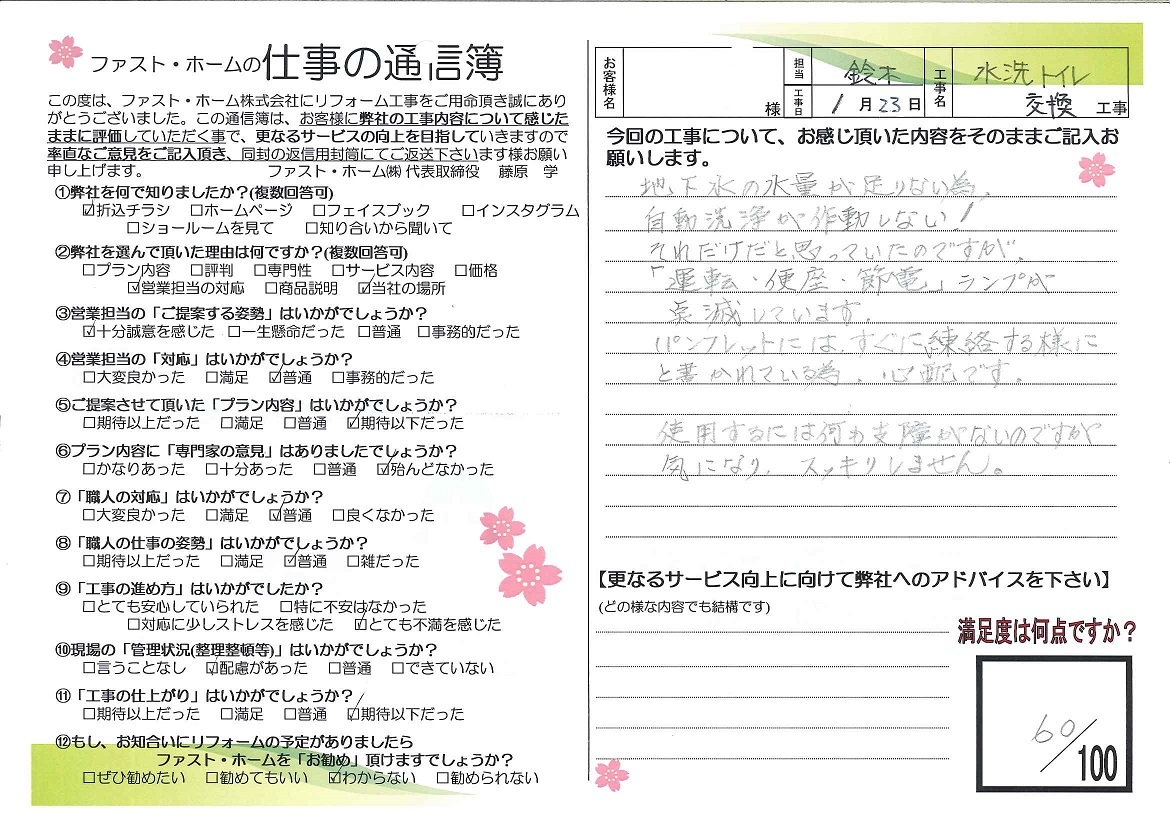 ファスト・ホームの仕事の通信簿
この度は、ファスト・ホーム株式会社にリフォーム工事をご用命頂き誠にあり
がとうございました。この通信簿は、お客様に弊社の工事内容について感じた
ままに評価していただく事で、更なるサービスの向上を目指していきますので
率直なご意見をご記入頂き、同封の返信用封筒にてご返送下さいます様お願い
申し上げます。 ファスト・ホーム㈱ 代表取締役 藤原 学
①弊社を何で知りましたか?(複数回答可)
☑折込チラシ □ホームページ □フェイスブック □インスタグラム
□ショールームを見て □知り合いから聞いて
②弊社を選んで頂いた理由は何ですか?(複数回答可)
□プラン内容 □評判 □専門性 □サービス内容 □価格
☑営業担当の対応 □商品説明 ☑当社の場所
③営業担当の「ご提案する姿勢」はいかがでしょうか?
☑十分誠意を感じた □一生懸命だった □普通 □事務的だった
④営業担当の「対応」はいかがでしょうか?
□大変良かった □満足 ☑普通 □事務的だった
⑤ご提案させて頂いた「プラン内容」はいかがでしょうか?
□期待以上だった □満足 □普通 ☑期待以下だった
⑥プラン内容に「専門家の意見」はありましたでしょうか?
□かなりあった □十分あった □普通 ☑殆んどなかった
⑦「職人の対応」はいかがでしょうか?
□大変良かった □満足 ☑普通 □良くなかった
⑧「職人の仕事の姿勢」はいかがでしょうか?
□期待以上だった □満足 ☑普通 □雑だった
⑨「工事の進め方」はいかがでしたか?
□とても安心していられた □特に不安はなかった
□対応に少しストレスを感じた ☑とても不満を感じた
⑩現場の「管理状況(整理整頓等)」はいかがでしょうか?
□言うことなし ☑配慮があった □普通 □できていない
⑪「工事の仕上がり」はいかがでしょうか?
□期待以上だった □満足 □普通 ☑期待以下だった
⑫もし、お知合いにリフォームの予定がありましたら
ファスト・ホームを「お勧め」頂けますでしょうか?
□ぜひ勧めたい □勧めてもいい ☑わからない □勧められない
お客様名 様 担当 鈴木 工事名 水洗トイレ
工事日 1月23日 交換 工事
今回の工事について、お感じ頂いた内容をそのままご記入お
願いします。
地下水の水量が足りない為、
自動洗浄が作動しない!
それだけだと思っていたのですが、
「運転・便座・節電」ランプが
点滅しています。
パンフレットには、すぐに練絡する様に
と書かれている為、心配です。
使用するには何も支障がないのですが
気になり、スッキリしません。
【更なるサービス向上に向けて弊社へのアドバイスを下さい】
(どの様な内容でも結構です)
満足度は何点ですか?
60/100